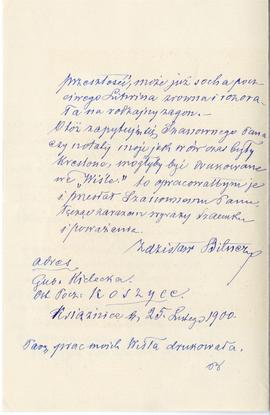 przeszłości, może już socha pocz-
ciwego Litwina zrównała i rozora-
ła na rodzajny zagon.
Otóż zapytuję Szanownego Pana
czy notaty moje jak one były
kreślone, mogłyby być drukowane
we „Wiśle” to opracowałbym je
i przesłał Szanownemu Panu.
Łączę zarazem wyrazy szacunku
i poważania.
Zdzisław
adres
Gub. Kielecka.
Od. Pocz. Koszyce.
Książnice W. 25. Lutego 1900.
prac moich Wisła drukowała.